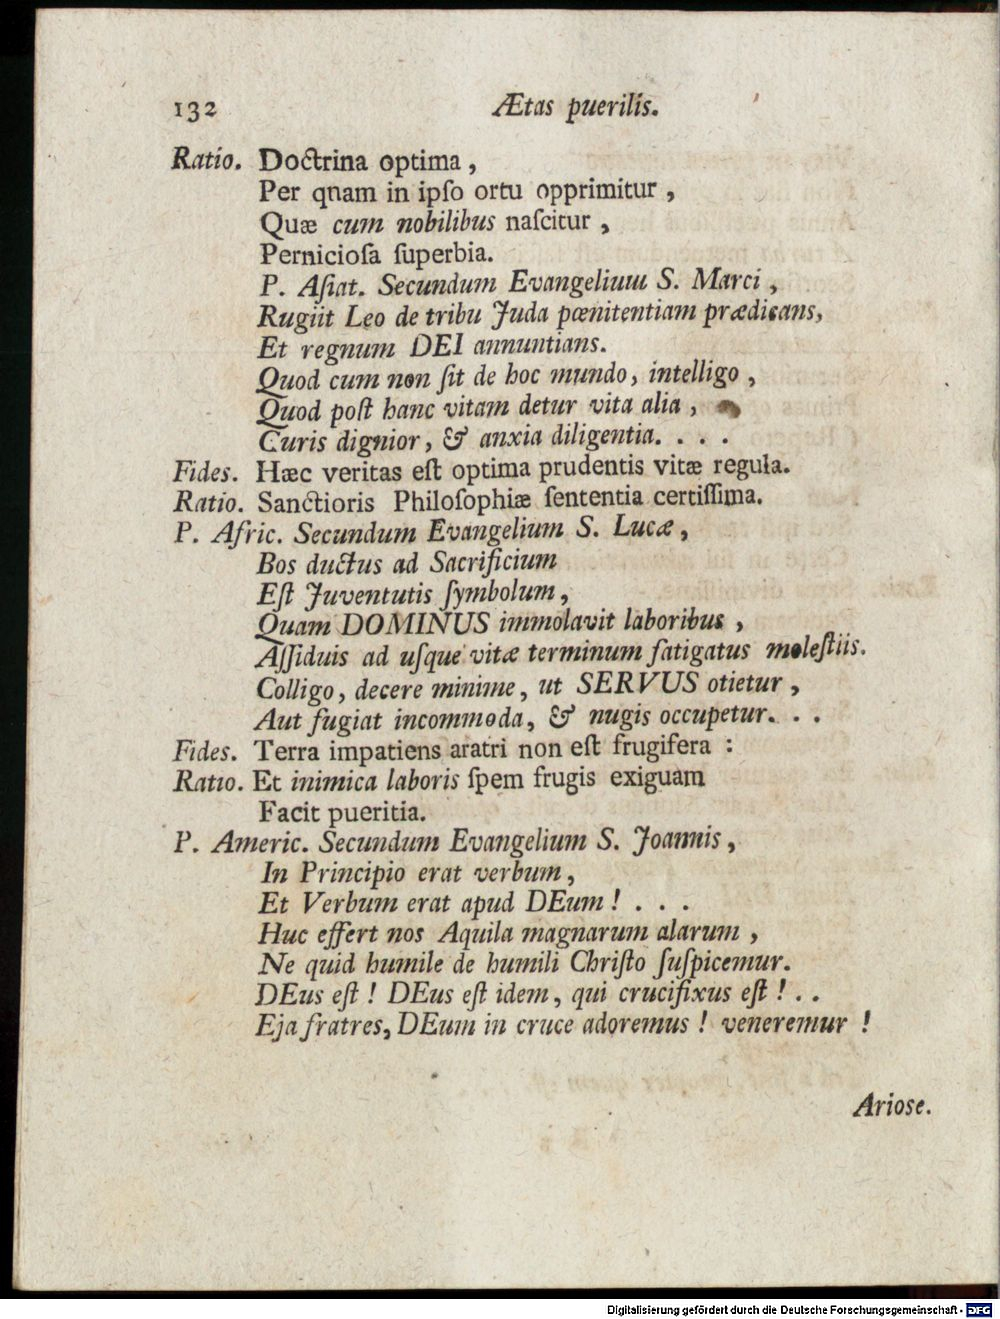 132 Ætas puerilis.
Ratio. Doctrina optima ,
Per qnam in ipſo ortu opprimitur ,
Quæ cum nobilibus naſcitur ,
Pernicioſa ſuperbia.
P. Aſiat. Secundum Evangelium S. Marci ,
Rugiit Leo de tribu Juda pœnitentiam prædicans,
Et regnum DEI annuntians.
Quod cum non ſit de hoc mundo, intelligo ,
Quod poſt hanc vitam detur vita alia ,
Curis dignior, & anxia diligentia. . . .
Fides. Hæc veritas eſt optima prudentis vitæ regula.
Ratio. Sanctioris Philoſophiæ ſententia certiſſima.
P. Afric. Secundum Evangelium S. Lucæ ,
Bos ductus ad Sacrificium
Eſt Juventutis ſymbolum,
Quam DOMINUS immolavit laboribus ,
Aſſiduis ad uſque vitæ terminum fatigatus moleſtiis.
Colligo, decere minime, ut SERVUS otietur ,
Aut fugiat incommoda, & nugis occupetur. . .
Fides. Terra impatiens aratri non eſt frugifera :
Ratio. Et inimica laboris ſpem frugis exiguam
Facit pueritia.
P. Americ. Secundum Evangelium S. Joannis ,
In Principio erat verbum,
Et Verbum erat apud DEum ! . . .
Huc effert nos Aquila magnarum alarum ,
Ne quid humile de humili Chriſto ſuſpicemur.
DEus eſt ! DEus eſt idem, qui crucifixus eſt ! . .
Eja fratres, DEum in cruce adoremus ! veneremur !
Arioſe.
Digitalisierung gefördert durch die Deutsche Forschungsgemeinschaft - DFG